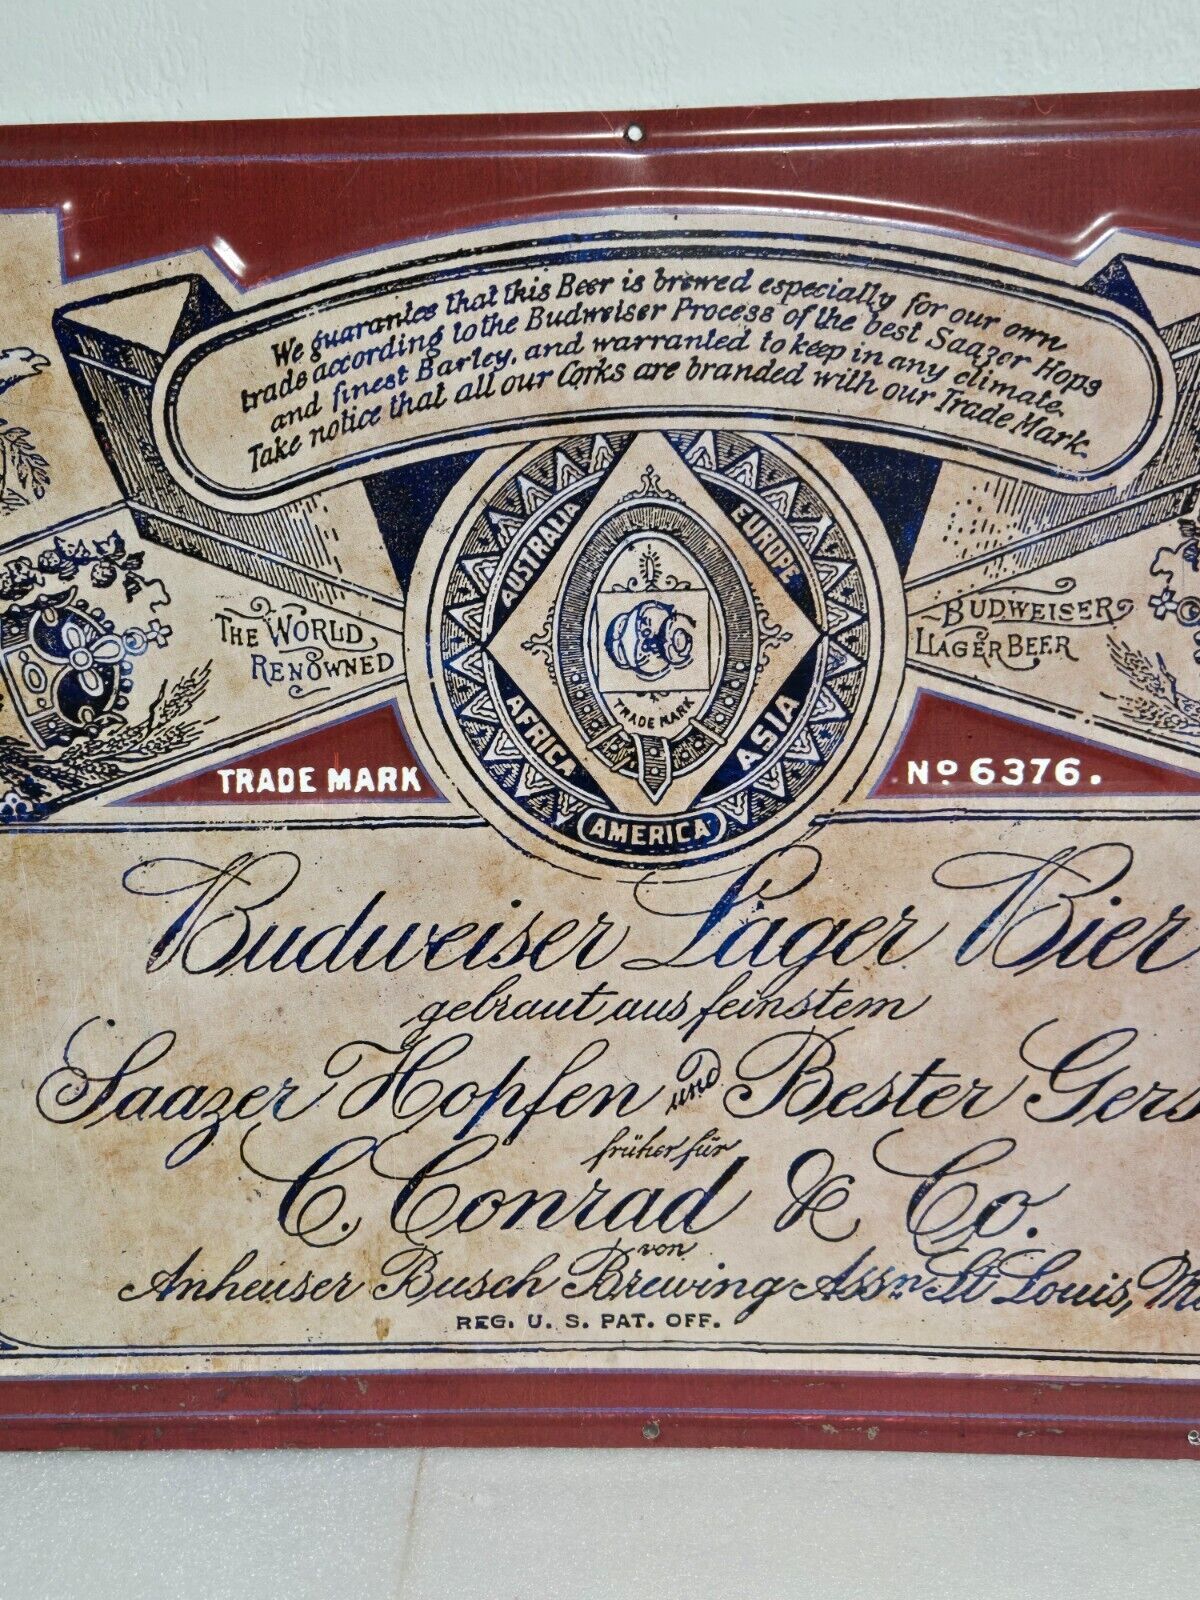 We guarantee that this Beer is brewed especially for our own
trade according to the Budweiser Process of the best Saazer Hops
and finest Barley, and warranted to keep in any climate.
Take notice that all our Corks are branded with our Trade Mark.
AUSTRALIA
EUROPE
THE WORLD
RENOWNED
BUDWEISER
LAGER BEER
TRADE MARK
AFRICA
ASIA
TRADE MARK
No 6376.
AMERICA
Budweiser Lager Bier
gebraut aus feinstem
Saazer Hopfen und Bester Gers
früher für
C. Conrad & Co.
von
Anheuser Busch Brewing Assn St Louis, Mo
REG. U. S. PAT. OFF.